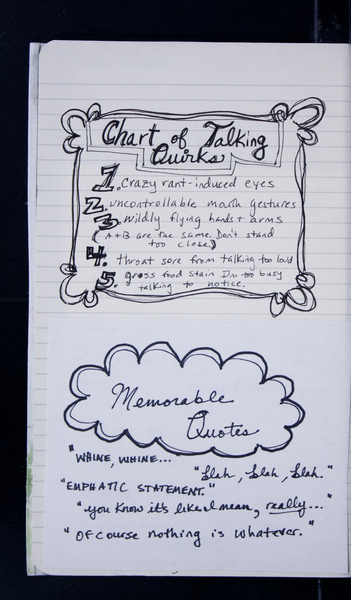 Chart of Talking
Quirks
1. Crazy rant-induced eyes
2. uncontrollable mouth gestures
3. wildly flying hands + arms
(A+B are the same. Don't stand
too close)
4. throat sore from talking too loud
5. gross food stain I'm too busy
talking to notice.
Memorable
Quotes
"WHINE, WHINE...
"Blah, blah, blah."
"EMPHATIC STATEMENT."
"you know it's like I mean, really..."
"Of course nothing is whatever."